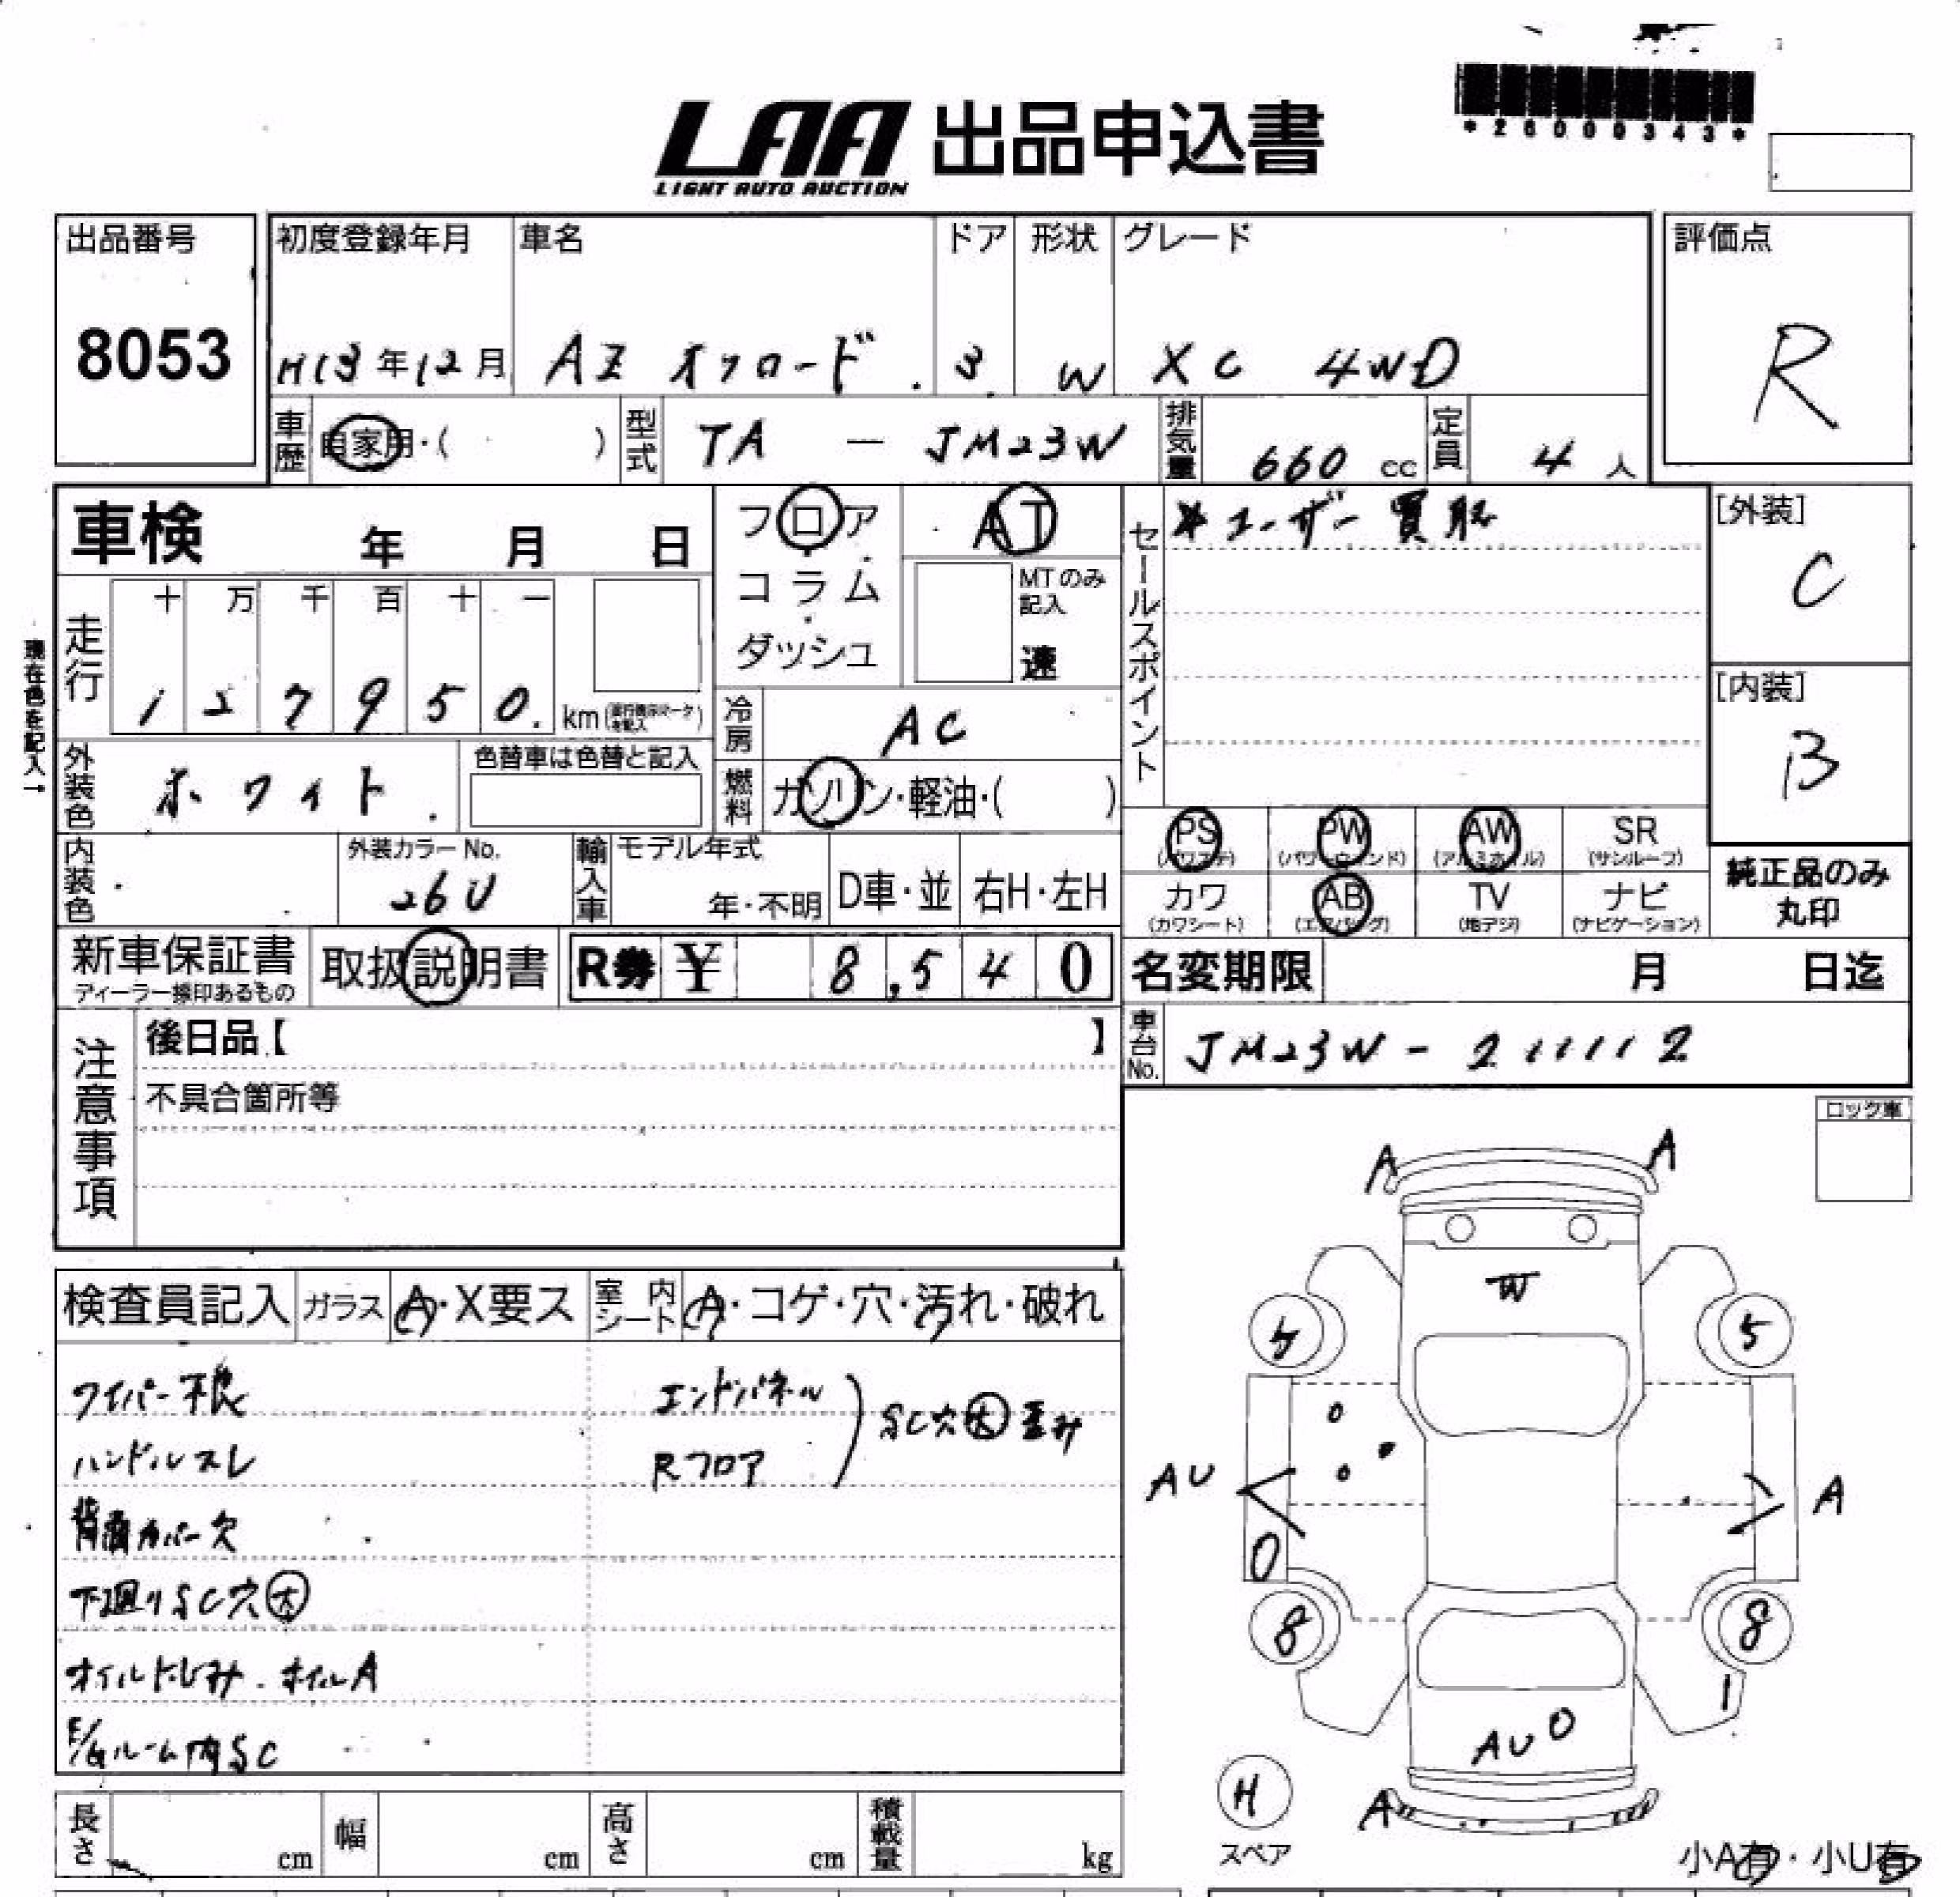 *26000343*
LAA 出品申込書
LIGHT AUTO AUCTION
出品番号
8053
初度登録年月
H13年12月
車名
AZ オフロード
ドア
3
形状
W
グレード
XC 4WD
評価点
R
車歴
自家用・( )
型式
TA - JM23W
排気量
660 cc
定員
4 人
車検 年 月 日
フロア・コラム・ダッシュ
AT
MTのみ記入
速
セールスポイント
*ユーザー買取
[外装]
C
[内装]
B
現在色を記入→
走行
十 万 千 百 十 一
1 2 7 9 5 0 km
冷房
AC
外装色
ホワイト
色替車は色替と記入
燃料
ガソリン・軽油・( )
内装色
外装カラー No.
26U
輸入車
モデル年式
年・不明
D車・並
右H・左H
PS
(パワステ)
PW
(パワーウィンド)
AW
(アルミホイル)
SR
(サンルーフ)
カワ
(カワシート)
AB
(エアバッグ)
TV
(地デジ)
ナビ
(ナビゲーション)
純正品のみ
丸印
新車保証書
ディーラー捺印あるもの
取扱説明書
R券 ¥ 8,540
名変期限 月 日迄
車台No.
JM23W - 211112
注意事項
後日品【 】
不具合箇所等
ロック車
検査員記入
ガラス
A・X要ス
室内シート
A・コゲ・穴・汚れ・破れ
ワイパー不良
ハンドルスレ
背面カバー欠
下廻りSC穴大
オイルにじみ.ホイルA
E/Gルーム内SC
エンドパネル
Rフロア
SC穴大 歪み
A
A
W
5
5
AU
A
8
8
AU
A
H
スペア
小A有・小U有
長さ cm
幅 cm
高さ cm
積載量 kg